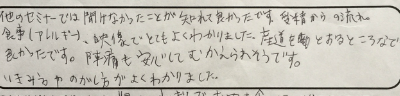 他のセミナーでは聞けなかったことが知れて良かったです。受精からの流れ、
食事(アレルギー)、映像でとてもよくわかりました。産道を通るところなど
良かったです。陣痛も安心してむかえられそうです。
いきみやのがし方がよくわかりました。